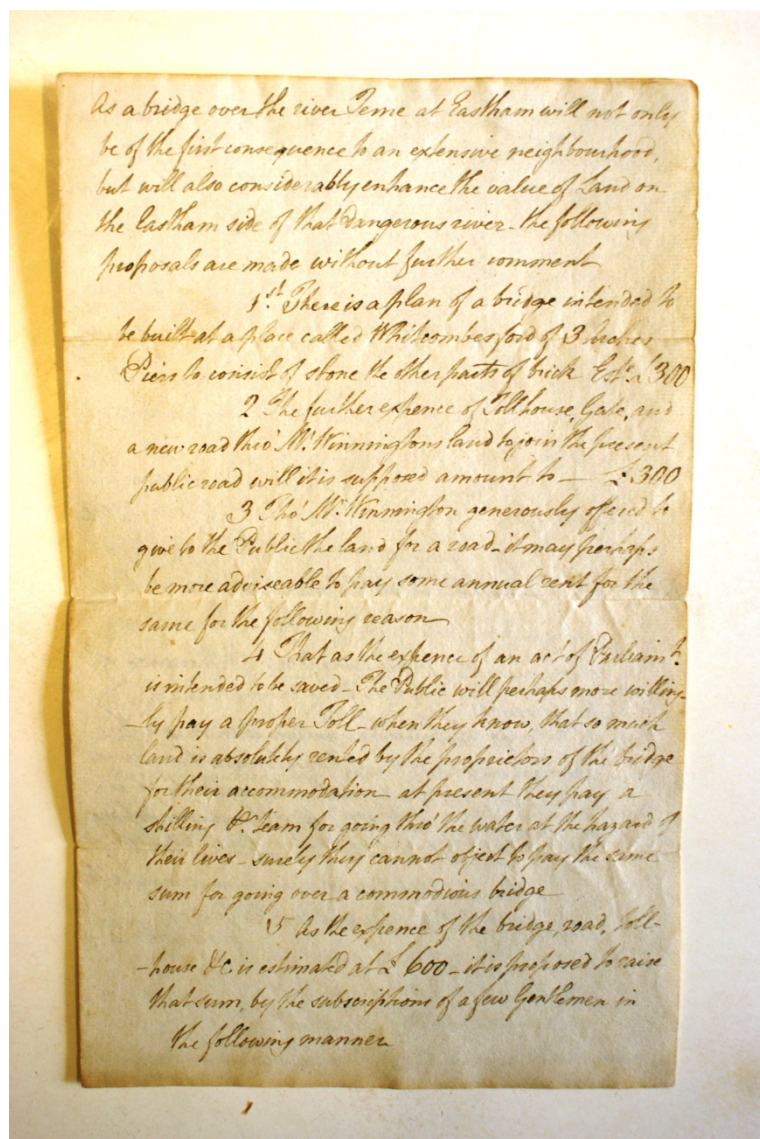 As a bridge over the river Teme at Eastham will not only
be of the first consequence to an extensive neighbourhood,
but will also considerably enhance the value of Land on
the Eastham side of that dangerous river - the following
proposals are made without further comment
1st. There is a plan of a bridge intended to
be built at a place called Whitcombesford of 3 Arches
Piers to consist of stone the other parts of brick Estd. a £300
2 The further expence of Tollhouse, Gate, and
a new road thro' Mr. Winningtons land to join the present
public road will it is supposed amount to — £300
3 Tho' Mr. Winnington generously offered to
give to the Public the land for a road - it may perhaps
be more adviseable to pay some annual rent for the
same for the following reason
4 That as the expence of an act of Parliamt.
is intended to be saved - The Public will perhaps more willing-
-ly pay a proper Toll - when they know, that so much
land is absolutely rented by the proprietors of the bridge
for their accommodation at present they pay a
shilling Pr. team for going thro' the water at the hazard of
their lives - surely they cannot object to pay the same
sum for going over a commodious bridge
5 As the expence of the bridge, road, toll-
-house &c is estimated at £600 - it is proposed to raise
that sum, by the subscriptions of a few Gentlemen in
the following manner